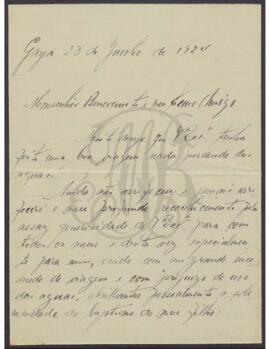 Gaya 23 de Junho de 1924
Monsenhor Benevenuto e seu Exmo Amigo
V Exa tenha
feito uma boa viagem nada perdendo das
aguas.
Ainda não arrefeceu e jamais arre-
fecerá o meu profundo reconhecimento pela
generosidade de V Exa para com
todos os meus e desta vez especialmen-
te para mim, vindo com um grande enco-
modo de viagem e com prejuizo do uso
das aguas, abrilhantar pessoalmente a sole-
mnidade do baptismo do meu filho.